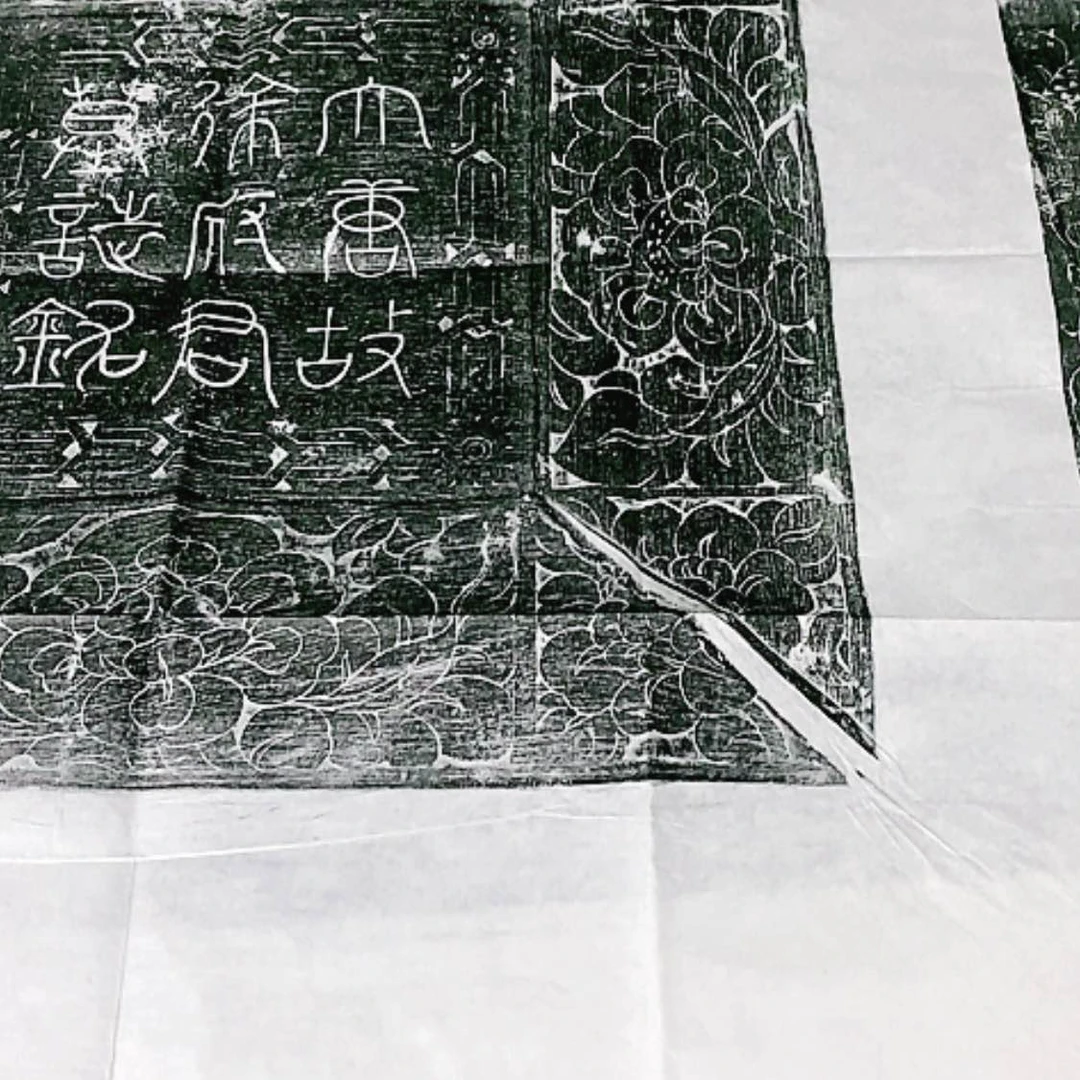 大唐故
徐府君
墓誌銘